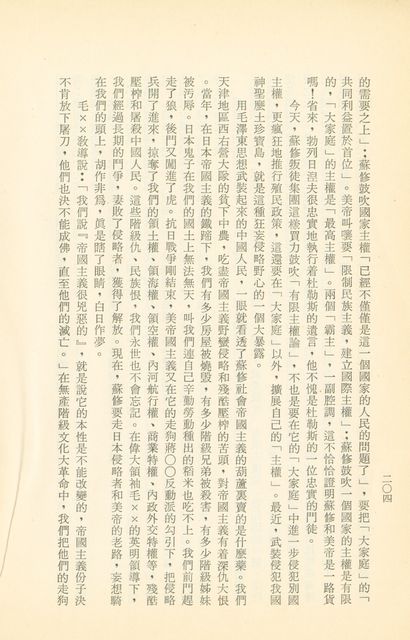 二〇四
的需要之上」；蘇修鼓吹國家主權「已經不僅僅是這一個國家的人民的問題了」，要把「大家庭」的「
共同利益置於首位」。美帝叫嚷要「限制民族主義，建立國際主權」；蘇修鼓吹一個國家的主權是有限
的，「大家庭」的主權是「最高主權」。兩個「霸主」，一副腔調，這不恰恰證明蘇修和美帝是一路貨
嗎！省來，勃列日涅夫很忠實地執行着杜勒斯的遺言，他不愧是杜勒斯的一位忠實的門徒。
今天，蘇修叛徒集團這樣賣力鼓吹「有限主權論」，不也是要在它的「大家庭」中進一步侵犯別國
主權，更瘋狂地推行殖民政策，這還要在「大家庭」以外，擴展自己的「主權」。最近，武裝侵犯我國
神聖麼土珍寶島，就是這種狂妄侵略野心的一個大暴露。
用毛澤東思想武裝起來的中國人民，一眼就看透了蘇修社會帝國主義的葫蘆裏賣的是什麼藥。我們
天津地區西右營大隊的貧下中農，吃盡帝國主義野蠻侵略和殘酷壓榨的苦頭，對帝國主義有着深仇大恨
。當年，在日本帝國主義的鐵蹄下，我們有多少房屋被燒毀，有多少階級兄弟被殺害，有多少階級姊妹
被污辱。日本鬼子在我們的國土上無法無天，叫我們連自己辛勤勞動種出的稻米也吃不上。我們前門趕
走了狼，後門又闖進了虎。抗日戰爭剛結束，美帝國主義又在它的走狗蔣〇〇反動派的勾引下，把侵略
兵開了進來，掠奪了我們的領土權、領海權、領空權、內河航行權、商業特權、內政外交特權等，殘酷
壓榨和屠殺中國人民。這些階級仇、民族恨，我們永世也不會忘記。在偉大領袖毛××的英明領導下，
我們經過長期的鬥爭，妻敗了侵略者，獲得了解放。現在，蘇修要走日本侵略者和美帝的老路，妄想騎
在我們的頭上，胡作非為，眞是瞎了眼睛，白日作夢。
毛××教導說：「我們說『帝國主義很兇惡的』，就是說它的本性是不能改變的，帝國主義份子決
不肯放下屠刀，他們也決不能成佛，直至他們的滅亡。」在無產階級文化大革命中，我們把他們的走狗